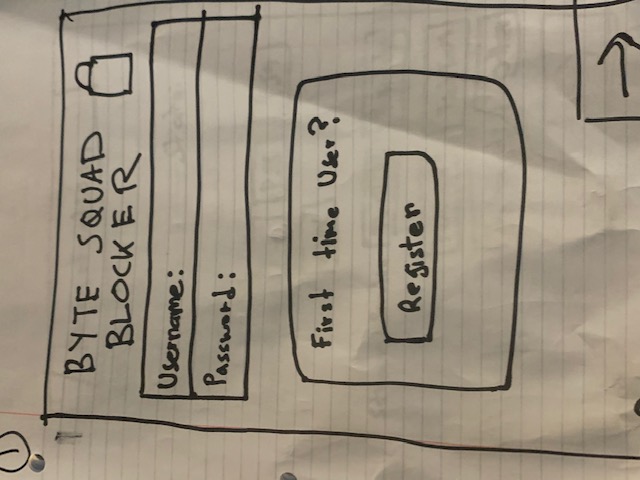 1
BYTE SQUAD
BLOCKER
Username:
Password:
First time User?
Register